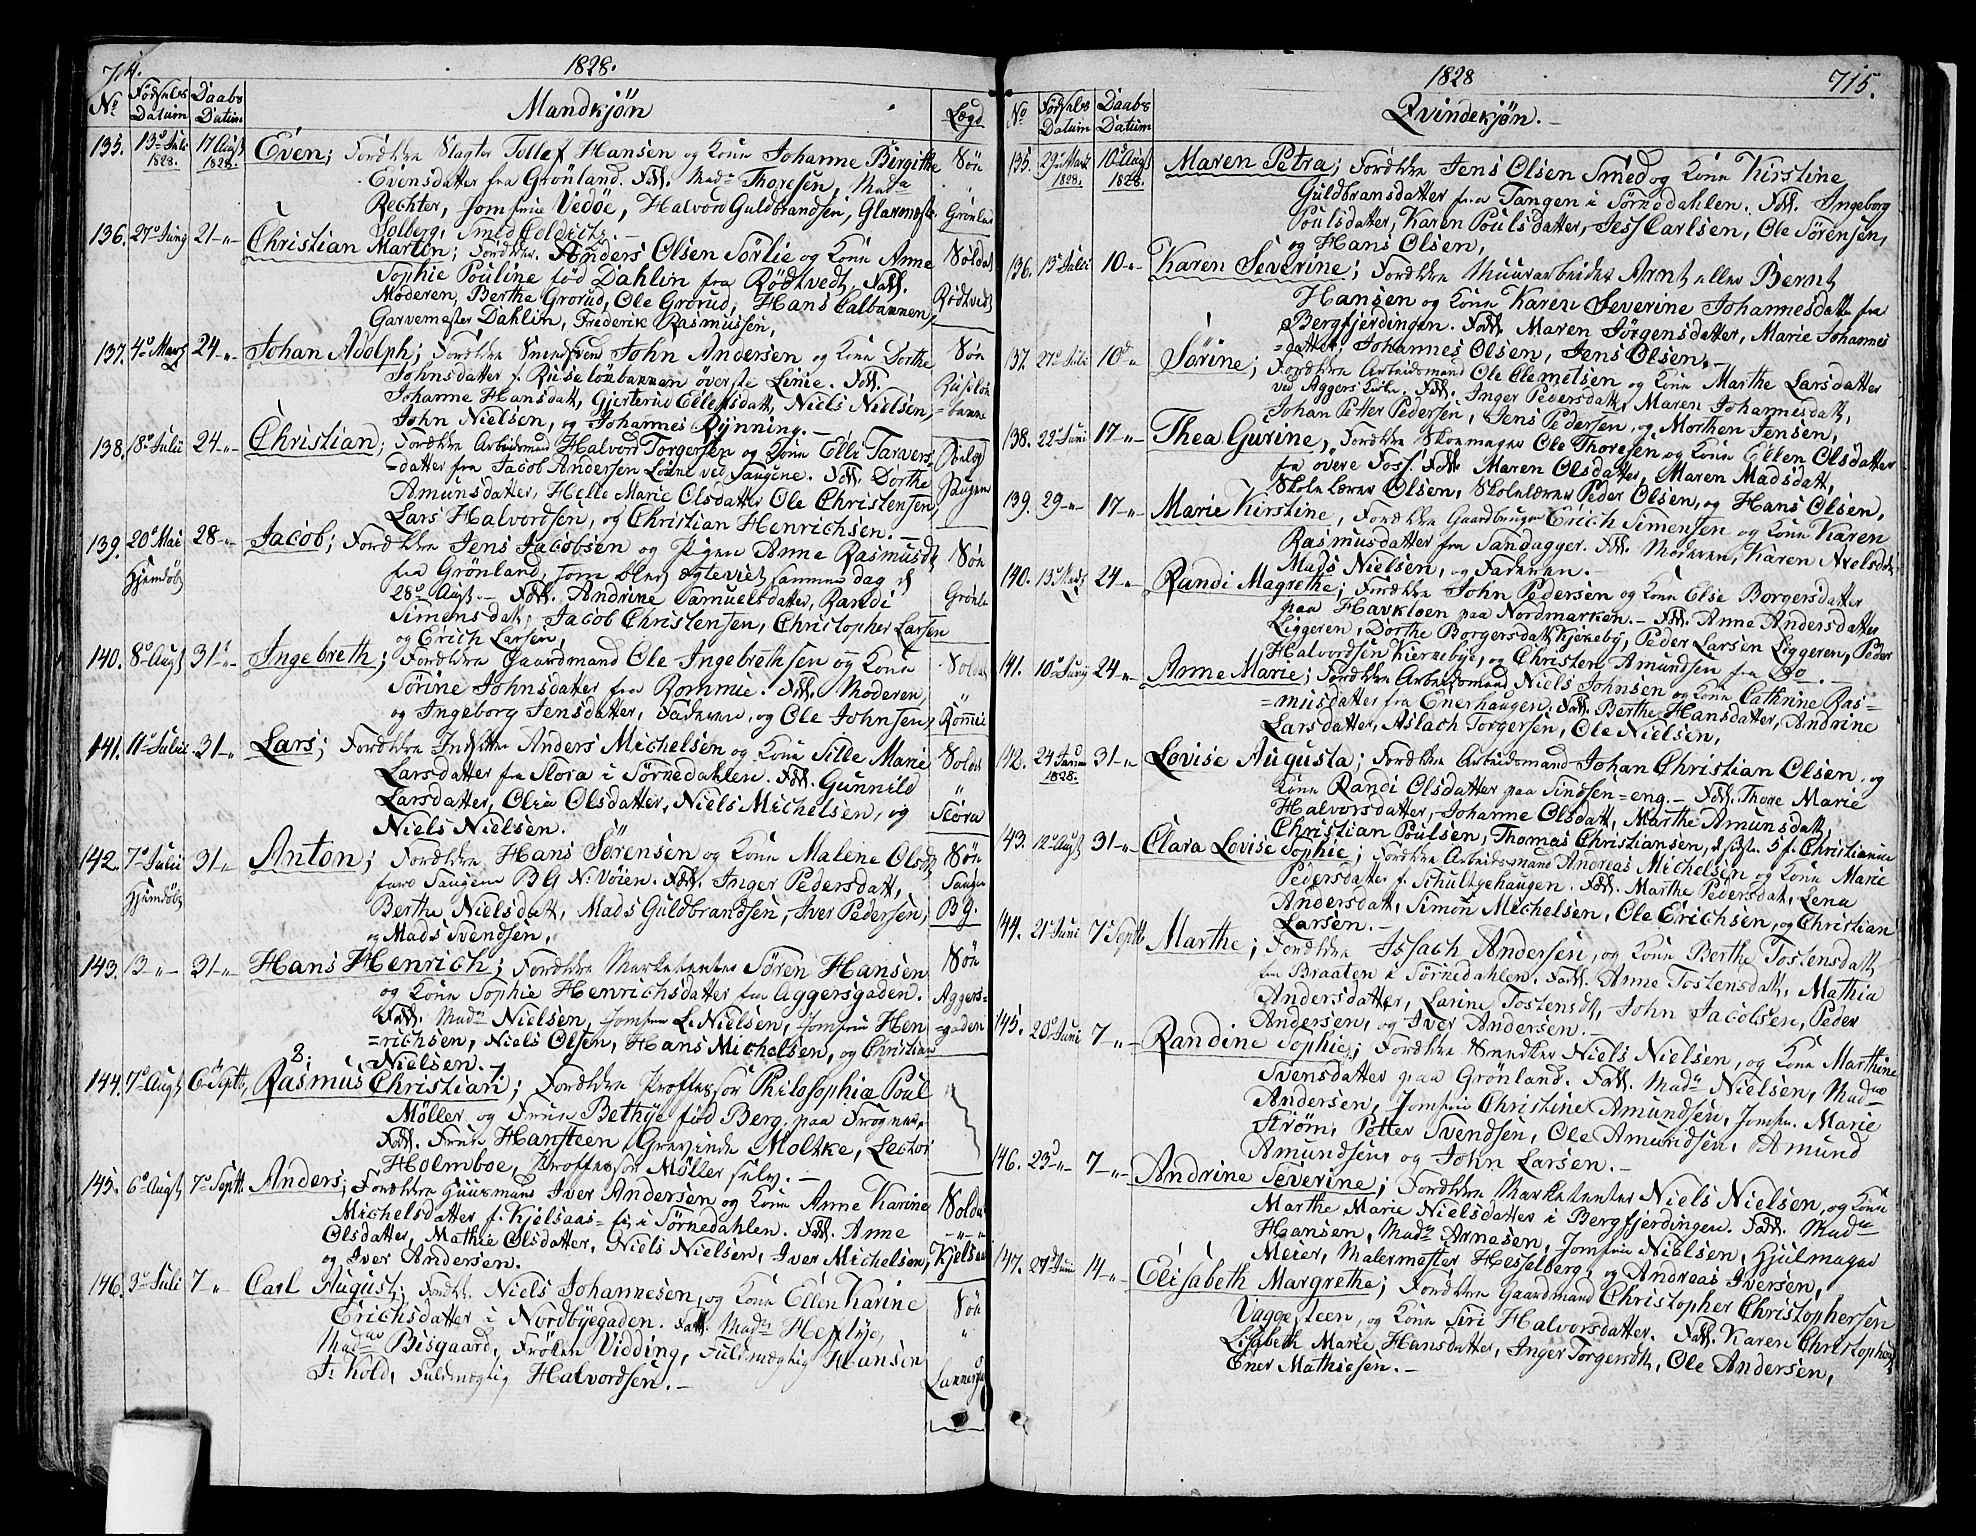 714.
1828.
No
Fødsels Datum
Daabs Datum
Mandkjøn
Lægd
135. 13de Julii 1828. 17 Augst 1828. Even; Forældre Slagter Tollef Hansen og Kone Johanne Birgitte Søe
Evensdatter fra Grönland. Fadd. Madm Thoresen, Mada
Rechter, Jomfrue Vedöe, Halvord Guldbrandsen, Glarmester Grönland
Solberg, Smed
136. 27de Juny 21 -"- Christian Martin; Forældre Anders Olsen Sörlie og Kone Anne Soldat
Sophie Pouline fød Dahlin fra Rödtvedt, Fadd.
Moderen, Berthe Grorud, Ole Grorud, Hans Calbannen, Rödtvedt
Garvemester Dahlin, Frederik Rasmussen,
137. 4de Marts 24 -"- Johan Adolph; Forældre John Andersen og Kone Dorthe Søe
Johnsdatter f. Ruseløkbannen överste Linie. Fadd.
Johanne Hansdatt, Gjerterud Ellefsdatt, Niels Nielsen, =banne
John Nielsen, og Johannes Rynning. -
138. 18de Julii 24 -"- Christian; Forældre Arbeidsmand Halvord Torgersen og Kone Elli Taravers=
=datter fra Jacob Andersen Löine ved Saugene. Fadd. Dorthe
Amunsdatter, Helle Marie Olsdatter Ole Christensen, Saugene
Lars Halvordsen, og Christian Henrichsen. -
139. 20de Mai 28 -"- Jacob; Forældre Jens Jacobsen og Pigen Anne Rasmusdt Søe
Hjemdöbt fra Grönland, som blev ægteviet samme dag d
28de Augst. - Fadd. Andrine Samuelsdatter, Randi Grönl
Simensdat, Jacob Christensen, Christopher Larsen
og Erich Larsen,
140. 8de Augst 31 -"- Ingebreth; Forældre Gaardmand Ole Ingebrethsen og Kone Soldat
Sörine Johnsdatter fra Rommie. Fadd. Moderen "
og Ingeborg Jensdatter, Faderen, og Ole Johnsen, Rommie
141. 11de Julii 31 -"- Lars; Forældre Anders Michelsen og Kone Sille Marie Soldat
Larsdatter fra Stora i Sörnedahlen. Fadd. Gunnild "
Larsdatter, Olia Olsdatter, Niels Michelsen, og Stora
Niels Nielsen.
142. 7de Julii 31 -"- Anton; Forældre Hans Sörensen og Kone Malene Olsdt Søe
Hjemdöbt Saugene B G No Vöien. Fadd. Inger Pedersdatt, Saugene
Berthe Nielsdatt, Mads Guldbrandsen, Iver Pedersen, B G.
og Mads Svendsen,
143. 13 "- 31 -"- Hans Henrich; Forældre Marketenter Sören Hansen Søe
og Kone Sophie Henrichsdatter fra Aggersgaden. Aggers=
Fadd. Madm Nielsen, Jomfru L. Nielsen, Jomfru Hen =gaden
=richsen, Niels Olsen, Hans Michelsen, og Christian
Nielsen.
144. 7de Augst 6te Septb, Rasmus Christian; Forældre Proffessor Philosophiæ Poul
Möller og Frue Bethye fød Berg, paa Frogner,
Fadd. Frue Hansteen, Grevinde Moltke, Lector
Holmboe, Proffessor Möller selv. -
145. 6te Augst 7de Septb. Anders; Forældre Huusmand Iver Andersen og Kone Anne Karine Soldat
Michelsdatter f. Kjelsaas i Sörnedahlen. Fadd. Anne
Olsdatter, Mathie Olsdatter, Niels Nielsen, Iver Michelsen, Kjelsaas
og Iver Andersen.
146. 3de Juli 7 -"- Carl August; Foreldr. Niels Johannesen, og Kone Ellen Karine Søe
Erichsdatter i Nordbyegaden. Fadd. Madm Heftye, "
Madm Bisgaard, Fröken Vidding, Fuldmægtig Hansen
Kold, Fuldmægtig Halvordsen. -
1828
715.
No
Fødsels Datum
Daabs Datum
Qvindekjön. -
135. 29de Marts 1828. 10de Augst 1828. Maren Petra; Forældre Jens Olsen Smed og Kone Kirstine
Guldbransdatter fra Tangen i Sörnedahlen. Fadd. Ingeborg
Poulsdatter, Karen Poulsdatter, Jess Carlsen, Ole Sörensen,
og Hans Olsen,
136. 13de Julii 10 -"- Karen Severine; Forældre Muurarbeider Arnt eller Bernt
Hansen og Kone Karen Severine Johannesdatter fra
Bergfjerdingen. Fadd. Maren Jörgensdatter, Marie Johannes
=datter, Johannes Olsen, Jens Olsen, -
137. 27de Julii 10de " Sörine; Forældre Arbeidsmand Ole Clemetsen og Kone Marthe Larsdatter
ved Aggers Kirke. Fadd. Inger Pedersdatt, Maren Johannesdatt,
Johan Petter Pedersen, Jens Pedersen, og Morthen Jensen,
138. 22de Juni 17 -"- Thea Gurine, Forældre Skoemager Ole Thoresen og Kone Ellen Olsdatter
fra övere Foss. Fadd. Maren Olsdatter, Maren Madsdatt,
Skolelærer Olsen, Skolelærer Peder Olsen, og Hans Olsen,
139. 29 -"- 17 -"- Marie Kirstine, Forældre Gaardbruger Erich Simensen og Kone Karen
Rasmusdatter fra Sandagger. Fadd. Moderen, Karen Axelsdt,
Mads Nielsen, og Faderen. -
140. 13de Marts 24 -"- Randi Magrethe; Forældre John Pedersen og Kone Else Borgersdatter
paa Havkloen paa Nordmarken. - Fadd. Anne Andersdatter
Liggeren, Dorthe Borgersdatt Kjekeby, Peder Larsen Liggeren, Peder
Halvordsen Kiernebye, og Christen Amundsen fra Do. -
141. 10de Juny 24 -"- Anne Marie; Forældre Arbeidsmand Niels Johnsen og Kone Cathrine Ras=
=musdatter fra Enerhaugen, Fadd. Berthe Hansdatter, Andrine
Larsdatter, Aslach Torgersen, Ole Nielsen,
142. 24 1828. 31 -"- Lovise Augusta; Forældre Arbeidsmand Johan Christian Olsen, og
Kone Randi Olsdatter paa Tindsen=eng. - Fadd. Thore Marie
Halvorsdatter, Johanne Olsdatt, Marthe Amunsdatt,
Christian Poulsen, Thomas Christiansen, d sidste 5 f. Christiania
43. 12te Augst 31 -"- Clara Lovise Sophie; Forældre Arbeidsmand Andreas Michelsen og Kone Marie
Pedersdatter f. Schultzehaugen. Fadd. Marthe Pedersdatt, Lena
Andersdatt, Simon Michelsen, Ole Erichsen, og Christian
Larsen. -
44. 21de Juni 7de Septb Marthe; Forældre Issach Andersen, og Kone Berthe Tostensdatt
fra Braaten i Sörnedahlen. Fadd. Anne Tostensdatt, Mathia
Andersdatter, Larine Tostensdt, John Jacobsen, Peder
Andersen, og Iver Andersen. -
145. 20de Juni 7 -"- Randine Sophie; Forældre Snedker Niels Nielsen, og Kone Marthine
Svensdatter paa Grönland. Fadd. Madm Nielsen, Madm
Andersen, Jomfru Christine Amundsen, Jomfru Marie
Ström, Petter Svendsen, Ole Amundsen, Amund
Amundsen, og John Larsen. -
146. 23d "- 7 -"- Andrine Severine; Forældre Marketenter Niels Nielsen, og Kone
Marthe Marie Nielsdatter i Bergfjerdingen. Fadd. Madm
Hansen, Madm Arnesen, Jomfru Nielsen, Hjulmager
Meier, Malermester Hesselberg, og Andreas Iversen,
147. 27de Juni 14 -"- Elisabeth Margrethe; Forældre Gaardmand Christopher Christophersen
Vaggesteen, og Kone Siri Halvorsdatter. Fadd. Karen Christophersd,
Lisabeth Marie Hansdatter, Inger Torgersdt, Ole Andersen,
Ener Mathiesen. -